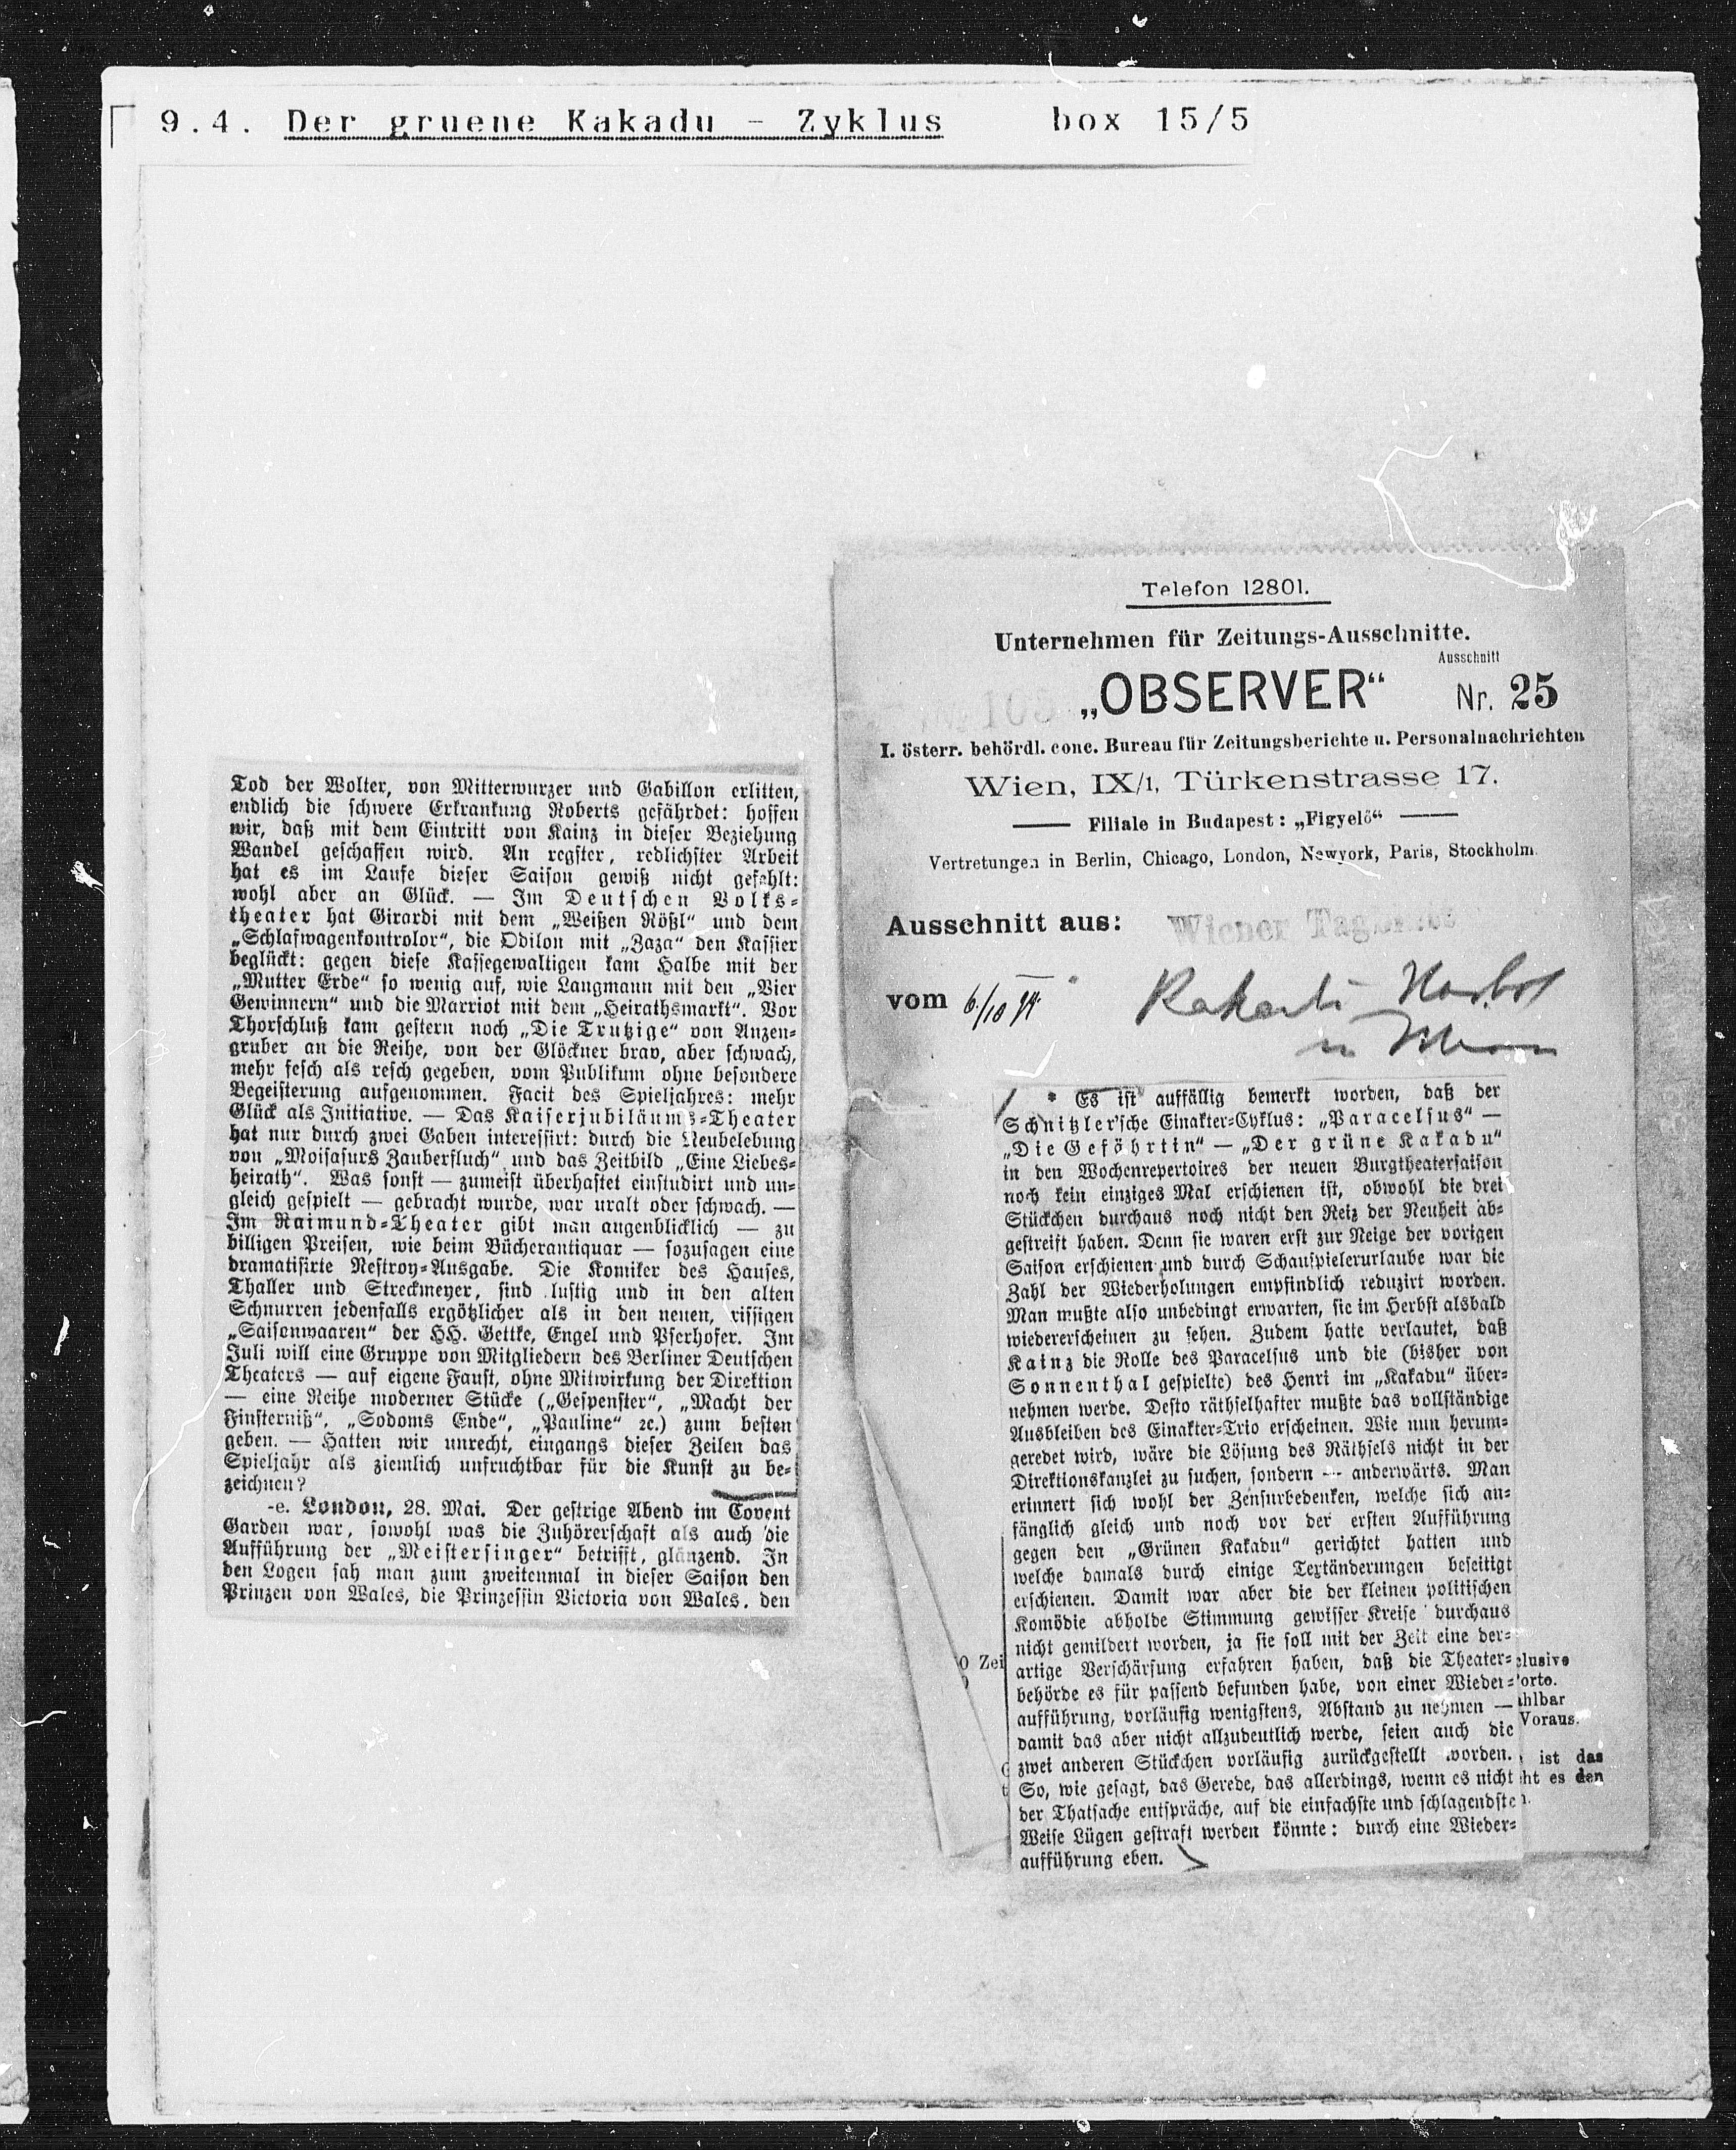 9.4. Der gruene Kakadu - Zyklus box 15/5
Tod der Wolter, von Mitterwurzer und Gabillon erlitten,
endlich die schwere Erkrankung Roberts gefährdet: hoffen
wir, daß mit dem Eintritt von Kainz in dieser Beziehung
Wandel geschaffen wird. An regster, redlichster Arbeit
hat es im Laufe dieser Saison gewiß nicht gefehlt:
wohl aber an Glück. — Im Deutschen Volks-
theater hat Girardi mit dem „Weißen Rößl“ und dem
„Schlafwagenkontrolor“, die Odilon mit „Zaza“ den Kassier
beglückt: gegen diese Kassegewaltigen kam Halbe mit der
„Mutter Erde“ so wenig auf, wie Langmann mit den „Vier
Gewinnern“ und die Marriot mit dem „Heirathsmarkt“. Vor
Thorschluß kam gestern noch „Die Trutzige“ von Anzen-
gruber an die Reihe, von der Glöckner brav, aber schwach,
mehr fesch als resch gegeben, vom Publikum ohne besondere
Begeisterung aufgenommen. Facit des Spieljahres: mehr
Glück als Initiative. — Das Kaiserjubiläums-Theater
hat nur durch zwei Gaben interessirt: durch die Neubelebung
von „Moisasurs Zauberfluch“ und das Zeitbild „Eine Liebes-
heirath“. Was sonst — zumeist überhastet einstudirt und un-
gleich gespielt — gebracht wurde, war uralt oder schwach. —
Im Raimund-Theater gibt man augenblicklich — zu
billigen Preisen, wie beim Bücherantiquar — sozusagen eine
dramatisirte Nestroy-Ausgabe. Die Komiker des Hauses,
Thaller und Streckmeyer, sind lustig und in den alten
Schnurren jedenfalls ergötzlicher als in den neuen, rissigen
„Saisonwaaren“ der HH. Gettke, Engel und Pferhofer. Im
Juli will eine Gruppe von Mitgliedern des Berliner Deutschen
Theaters — auf eigene Faust, ohne Mitwirkung der Direktion
— eine Reihe moderner Stücke („Gespenster“, „Macht der
Finsterniß“, „Sodoms Ende“, „Pauline“ ꝛc.) zum besten
geben. — Hatten wir unrecht, eingangs dieser Zeilen das
Spieljahr als ziemlich unfruchtbar für die Kunst zu be-
zeichnen?
-e. London, 28. Mai. Der gestrige Abend im Covent
Garden war, sowohl was die Zuhörerschaft als auch die
Aufführung der „Meistersinger“ betrifft, glänzend. In
den Logen sah man zum zweitenmal in dieser Saison den
Prinzen von Wales, die Prinzessin Victoria von Wales, den
Telefon 12801.
Unternehmen für Zeitungs-Ausschnitte.
Ausschnitt
„OBSERVER“ Nr. 25
I. österr. behördl. conc. Bureau für Zeitungsberichte u. Personalnachrichten
Wien, IX/1, Türkenstrasse 17.
Filiale in Budapest: „Figyelő“
Vertretungen in Berlin, Chicago, London, Newyork, Paris, Stockholm.
Ausschnitt aus: Wiener
vom 6/10
* Es ist auffällig bemerkt worden, daß der
Schnitzler'sche Einakter-Cyklus: „Paracelsus“ —
„Die Gefährtin“ — „Der grüne Kakadu“
in den Wochenrepertoires der neuen Burgtheatersaison
noch kein einziges Mal erschienen ist, obwohl die drei
Stückchen durchaus noch nicht den Reiz der Neuheit ab-
gestreift haben. Denn sie waren erst zur Neige der vorigen
Saison erschienen und durch Schauspielerurlaube war die
Zahl der Wiederholungen empfindlich reduzirt worden.
Man mußte also unbedingt erwarten, sie im Herbst alsbald
wiedererscheinen zu sehen. Zudem hatte verlautet, daß
Kainz die Rolle des Paracelsus und die (bisher von
Sonnenthal gespielte) des Henri im „Kakadu“ über-
nehmen werde. Desto räthselhafter mußte das vollständige
Ausbleiben des Einakter-Trio erscheinen. Wie nun herum-
geredet wird, wäre die Lösung des Räthsels nicht in der
Direktionskanzlei zu suchen, sondern — anderwärts. Man
erinnert sich wohl der Zensurbedenken, welche sich an-
fänglich gleich und noch vor der ersten Aufführung
gegen den „Grünen Kakadu“ gerichtet hatten und
welche damals durch einige Textänderungen beseitigt
erschienen. Damit war aber die der kleinen politischen
Komödie abholde Stimmung gewisser Kreise durchaus
nicht gemildert worden, ja sie soll mit der Zeit eine der-
artige Verschärfung erfahren haben, daß die Theater-
behörde es für passend befunden habe, von einer Wieder-
aufführung, vorläufig wenigstens, Abstand zu nehmen —
damit das aber nicht allzudeutlich werde, seien auch die
zwei anderen Stückchen vorläufig zurückgestellt worden.
So, wie gesagt, das Gerede, das allerdings, wenn es nicht
der Thatsache entspräche, auf die einfachste und schlagendste
Weise Lügen gestraft werden könnte: durch eine Wieder-
aufführung eben.
0 Zei
clusive
Porto.
ahlbar
Voraus.
ist das
ht es den